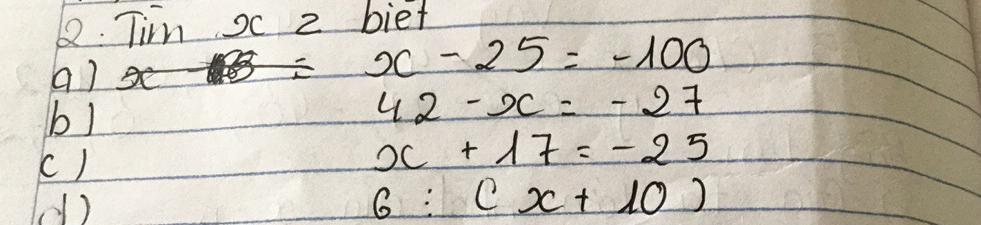 2. Tìm x z biết
a) x - 25 = -100
b) 42 - x = -27
c) x + 17 = -25
d) 6 : ( x + 10 )